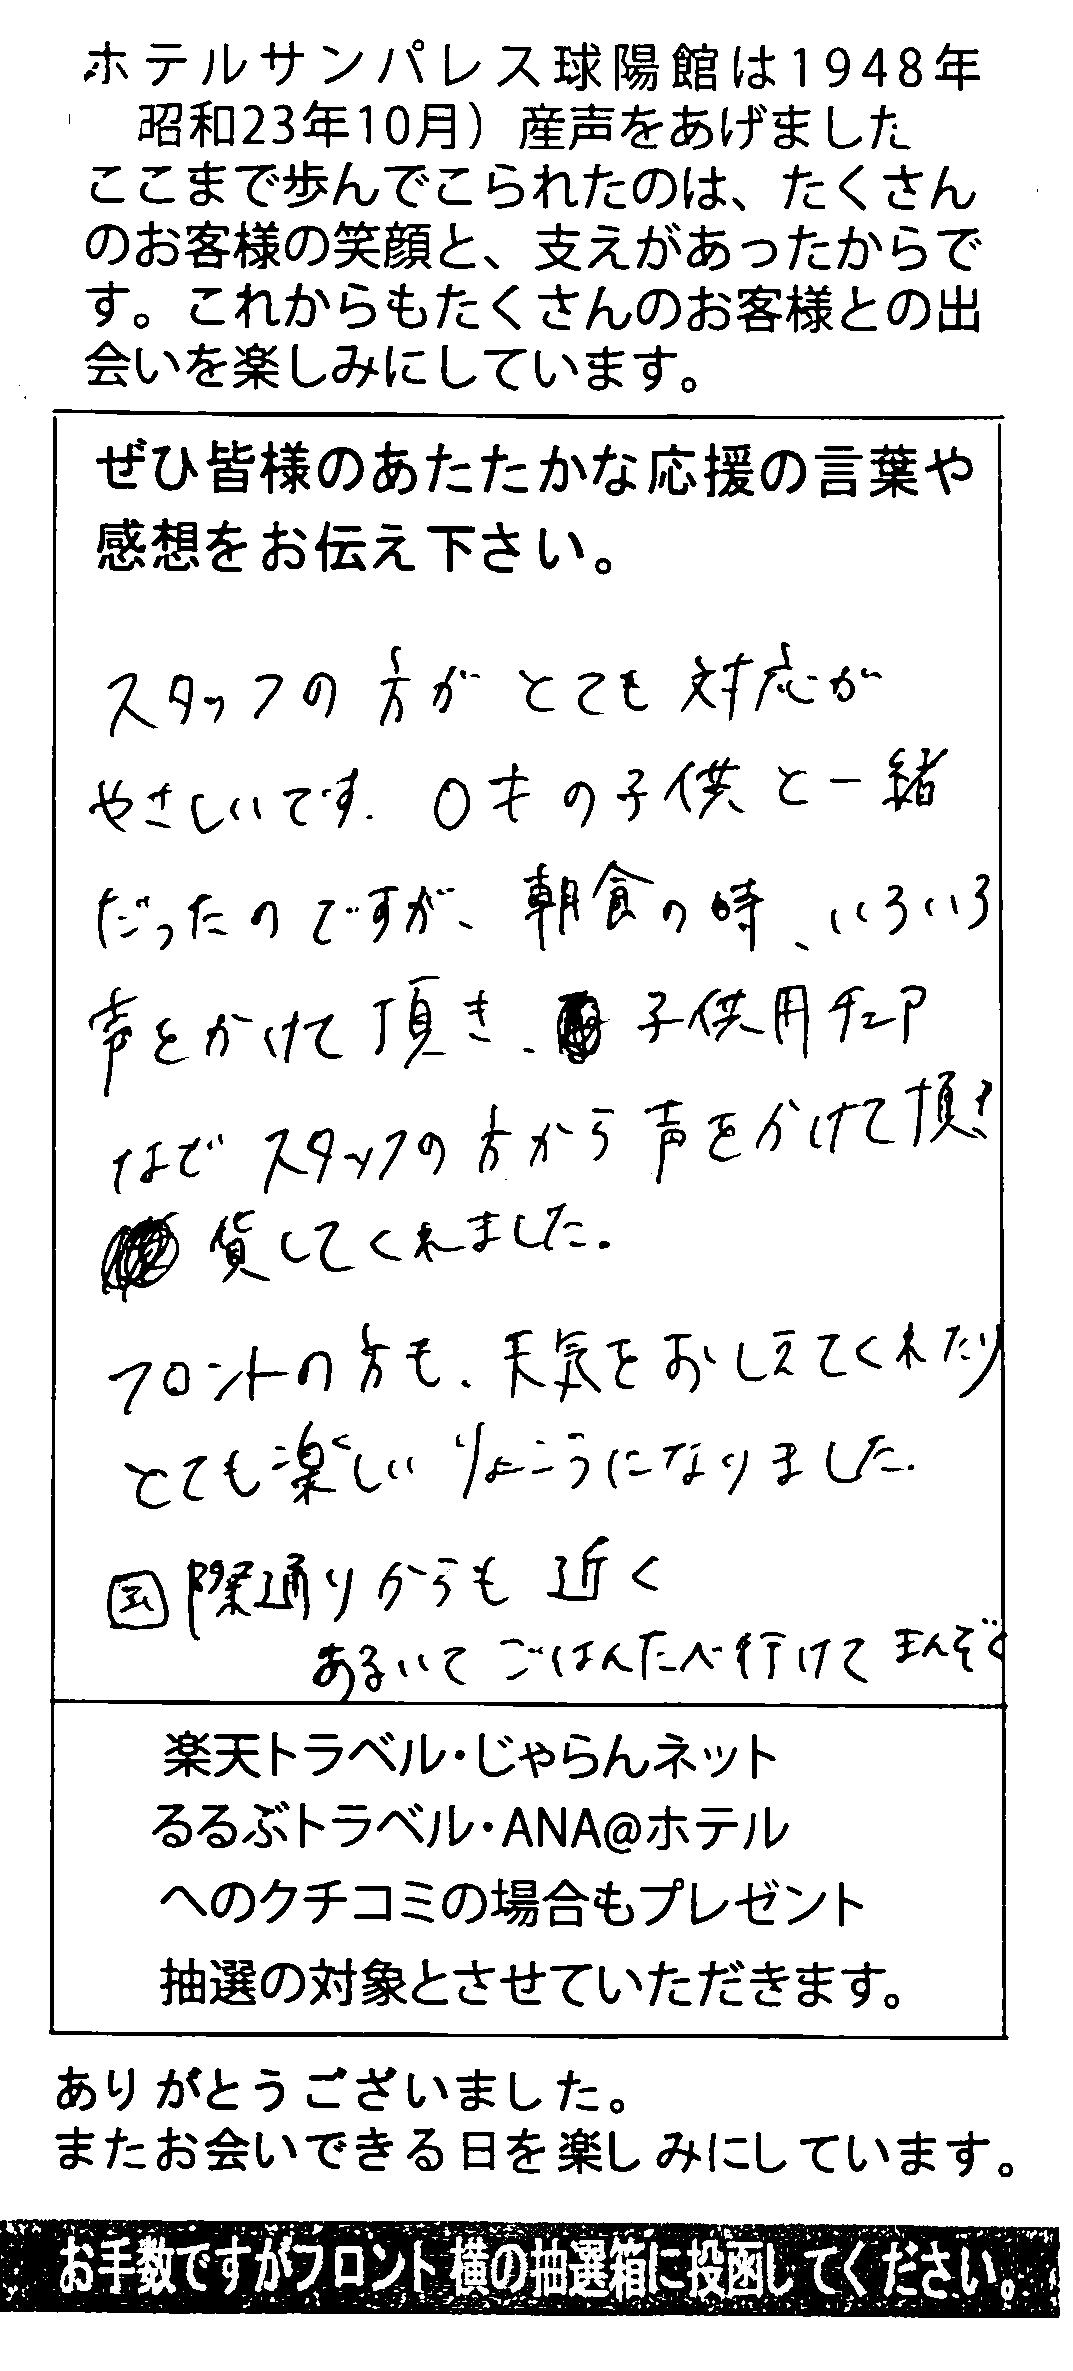 ホテルサンパレス球陽館は1948年
昭和23年10月）産声をあげました
ここまで歩んでこられたのは、たくさん
のお客様の笑顔と、支えがあったからで
す。これからもたくさんのお客様との出
会いを楽しみにしています。
ぜひ皆様のあたたかな応援の言葉や
感想をお伝え下さい。
スタッフの方がとても対応が
やさしいです。0才の子供と一緒
だったのですが、朝食の時、いろいろ
声をかけて頂き、子供用チェア
などスタッフの方から声をかけて頂き
貸してくれました。
フロントの方も、天気をおしえてくれたり
とても楽しいりょこうになりました。
国際通りからも近く
あるいてごはんたべ行けてまんぞく
楽天トラベル・じゃらんネット
るるぶトラベル・ANA@ホテル
へのクチコミの場合もプレゼント
抽選の対象とさせていただきます。
ありがとうございました。
またお会いできる日を楽しみにしています。
お手数ですがフロント横の抽選箱に投函してください。